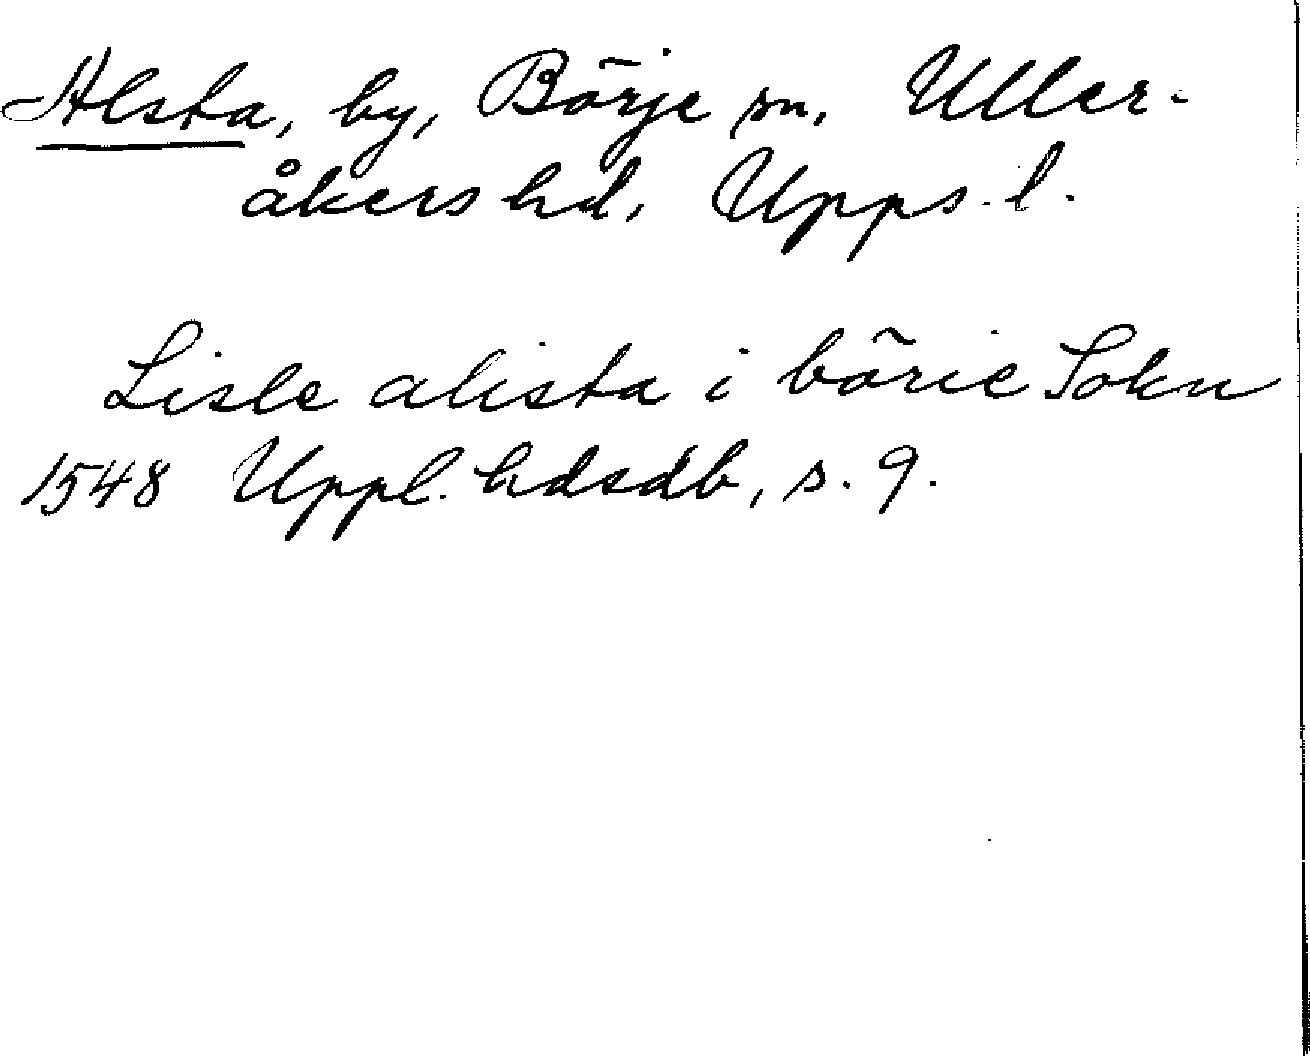 Alsta, by, Börje sn, Uller-
åkers hd, Upps. l.
Lisle alista i börie Sokn
1548 Uppl. hdsdb, s. 9.